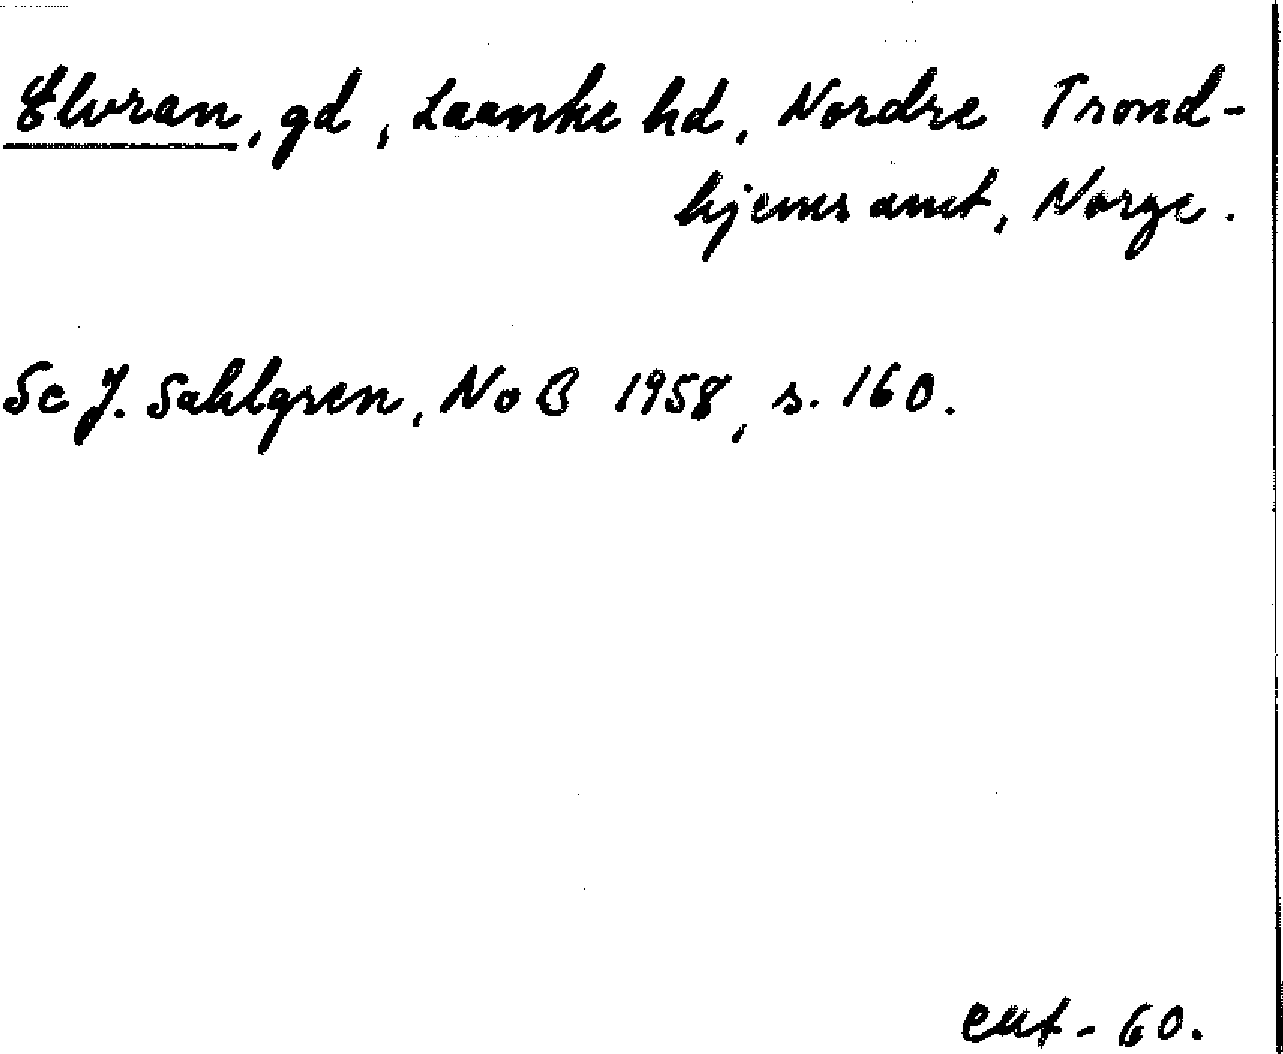 Elvran, gd, Laanke hd, Nordre Trond-
hjems amt, Norge.
Se J. Sahlgren, NoB 1958, s. 160.
- 60.